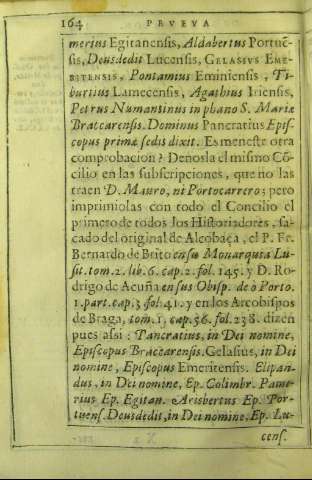 164 PRVEVA
merius Egitanensis, Aldabertus Portuẽ-
sis, Deusdedit Lucensis, GELASIVS EME-
RITENSIS, Pontamus Eminiensis, Ti-
burtius Lamecensis, Agathius Iriensis,
Petrus Numantinus in phano S. Mariæ
Braccarensis. Dominus Pancratius Epis-
copus primæ sedis dixit. Es menester otra
comprobacion? Denosla el mismo Cõ-
cilio en las subscripciones, que no las
traen D. Mauro, ni Portocarrero; pero
imprimiolas con todo el Concilio el
primero de todos los Historiadores, sa-
cado del original de Alcobaça, el P. Fr.
Bernardo de Brito en su Monarquia Lu-
sit. tom. 2. lib. 6. cap. 2. fol. 145. y D. Ro-
drigo de Acuña en sus Obisp. de o Porto.
1. part. cap. 3. fol. 41. y en los Arcobispos
de Braga, tom. 1. cap. 56. fol. 238. dizen
pues assi: Pancratius, in Dei nomine,
Episcopus Braccarensis. Gelasius, in Dei
nomine, Episcopus Emeritensis. Elipan-
dus, in Dei nomine, Ep. Colimbr. Pame-
rius Ep. Egitan. Arisbertus Ep. Por-
tuens. Deusdedit, in Dei nomine, Ep. Lu-
cens.